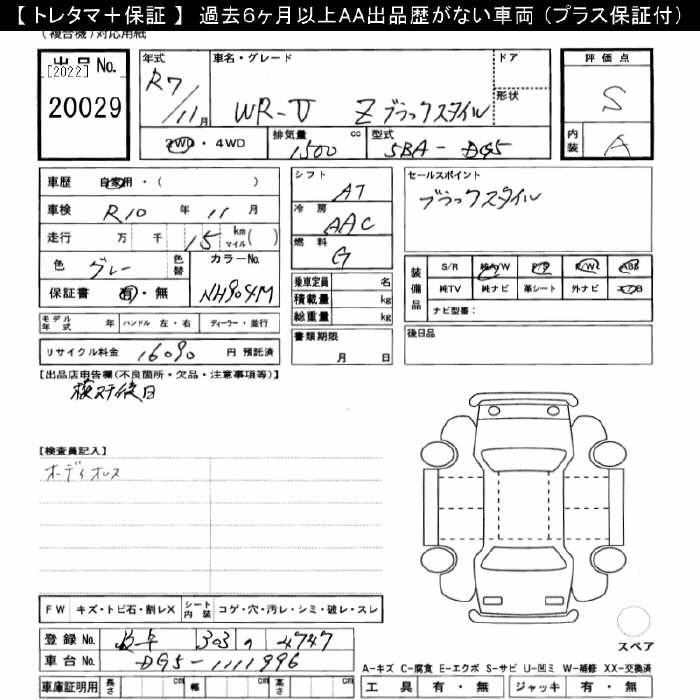 【 トレタマ＋保証 】 過去６ヶ月以上ＡＡ出品歴がない車両（プラス保証付）
（複合機）対応用紙
出品No.
[2022]
20029
年式
R7/11月
車名・グレード
WR-V Z ブラックスタイル
ドア
形状
評価点
S
内装
A
2WD・4WD
排気量
1500 cc
型式
5BA - DG5
車歴 自家用・( )
車検 R10 年 11 月
走行 万 千 15 km マイル( )
色 グレー 色替 カラーNo.
保証書 有・無 NH904M
シフト AT
冷房 AAC
燃料 G
乗車定員 名
積載量 kg
総重量 kg
セールスポイント
ブラックスタイル
装備品
S/R 純A/W P/S P/W ABS
純TV 純ナビ 革シート 外ナビ エアB
ナビ型番：
モデル年式 年 ハンドル 左・右 ディーラー・並行
書類期限
月 日
後日品
リサイクル料金 16090 円 預託済
【出品店申告欄(不良箇所・欠品・注意事項等)】
【検査員記入】
オーディオレス
FW キズ・トビ石・割レX シート内装 コゲ・穴・汚レ・シミ・破レ・スレ
登録No. 303 4747
車台No. DG5-1111996
スペア
A-キズ C-腐食 E-エクボ S-サビ U-凹ミ W-補修 XX-交換済
車庫証明用 長さ cm 幅 cm 高さ cm
工具 有・無 ジャッキ 有・無